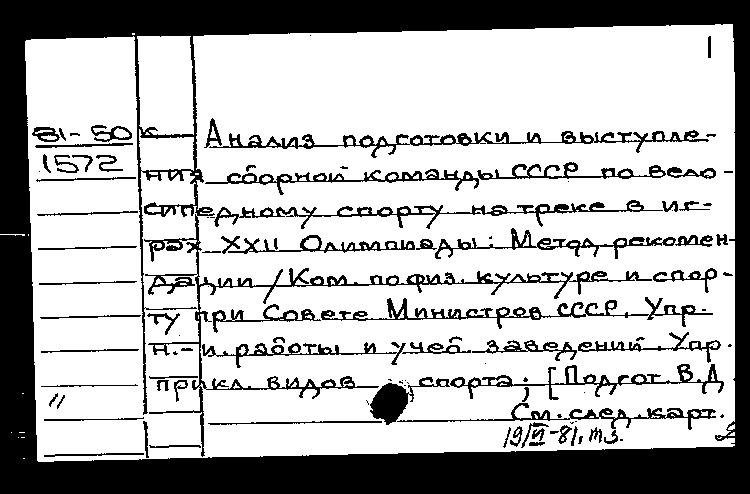 1
81-50 к Анализ подготовки и выступле-
1572 ния сборной команды СССР по вело-
сипедному спорту на треке в иг-
рах XXII Олимпиады: Метод. рекомен-
дации / Ком. по физ. культуре и спор-
ту при Совете Министров СССР, Упр.
н.-и. работы и учеб. заведений. Упр.
прикл. видов спорта; [Подгот. В.Д.
См. след. карт.
19/VI-81, т 3.